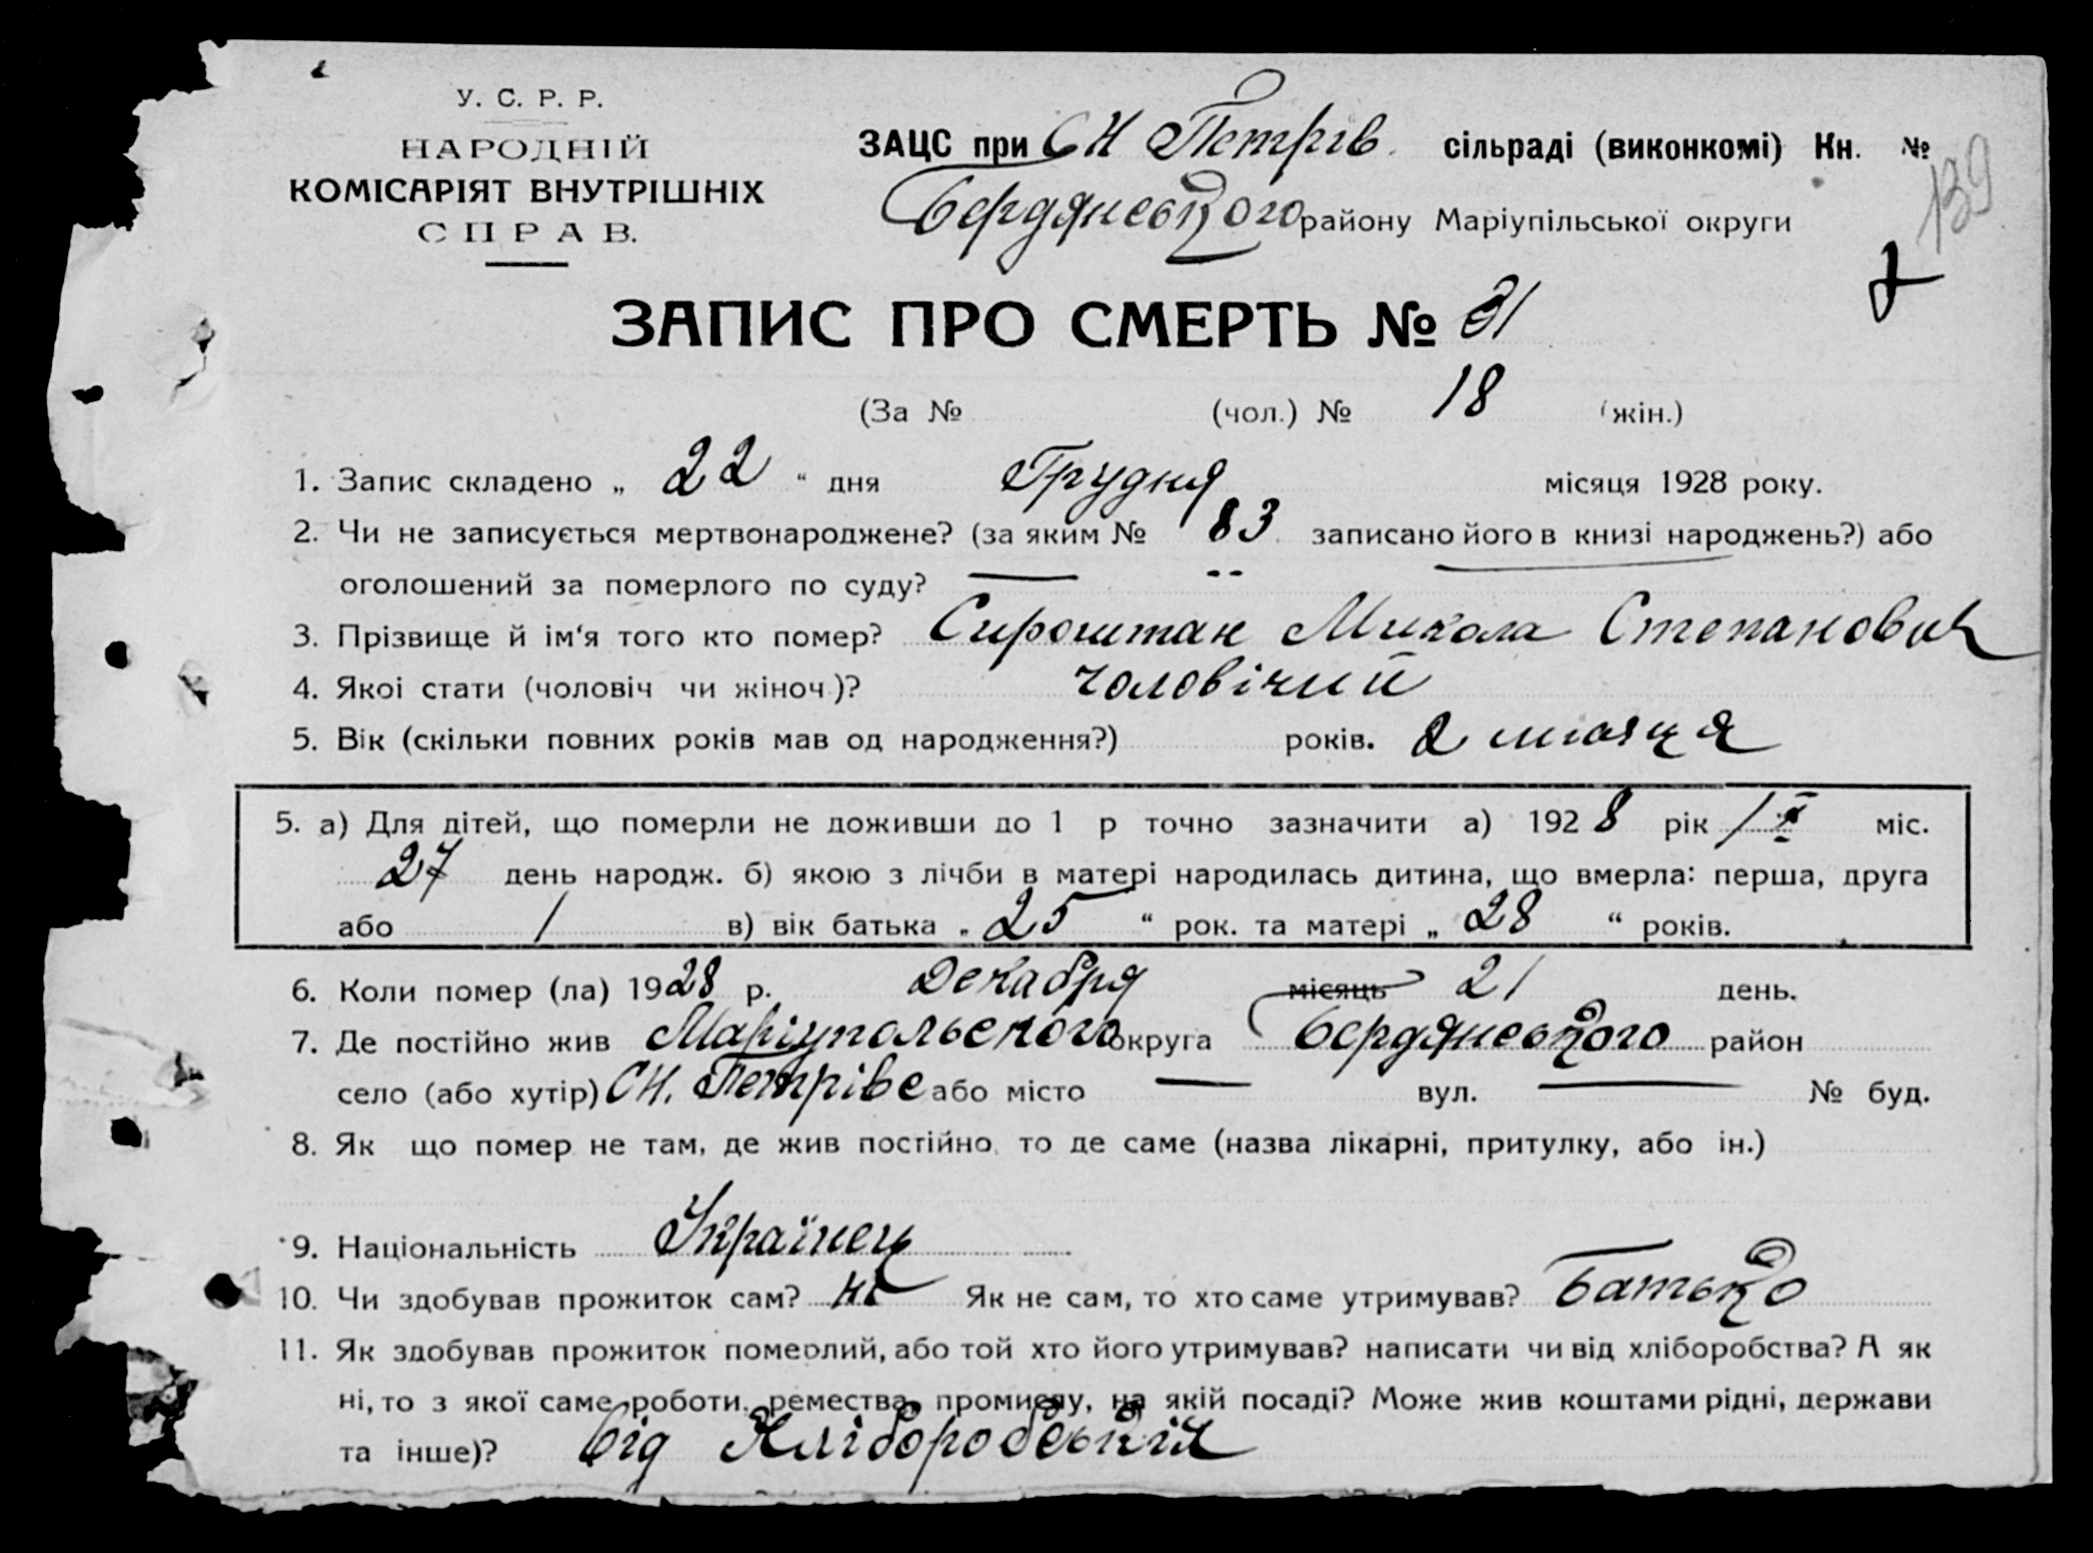 У. С. Р. Р.
НАРОДНІЙ
КОМІСАРІЯТ ВНУТРІШНІХ
СПРАВ.
ЗАЦС при СН Петрів. сільраді (виконкомі) Кн. №
139
Бердянського району Маріупільської округи
ЗАПИС ПРО СМЕРТЬ № 31
(За № (чол.) № 18 (жін.)
1. Запис складено „ 22 “ дня Грудня місяця 1928 року.
2. Чи не записується мертвонароджене? (за яким № 83 записано його в книзі народжень?) або
оголошений за померлого по суду? —
3. Прізвище й ім'я того кто помер? Сироштан Микола Степанович
4. Якоі стати (чоловіч чи жіноч.)? чоловічий
5. Вік (скільки повних років мав од народження?) років. 2 місяця
5. а) Для дітей, що померли не доживши до 1 р точно зазначити а) 1928 рік міс.
27 день народж. б) якою з лічби в матері народилась дитина, що вмерла: перша, друга
або / в) вік батька „ 25 “ рок. та матері „ 28 “ років.
6. Коли помер (ла) 1928 р. Декабря місяць 21 день.
7. Де постійно жив Маріупольського округа Бердянського район
село (або хутір) СН. Петрівс або місто — вул. — № буд.
8. Як що помер не там, де жив постійно, то де саме (назва лікарні, притулку, або ін.)
9. Національність Українец
10. Чи здобував прожиток сам? ні Як не сам, то хто саме утримував? Батько
11. Як здобував прожиток померлий, або той хто його утримував? написати чи від хліборобства? А як
ні, то з якої саме роботи, ремества, промислу, на якій посаді? Може жив коштами рідні, держави
та інше)? Від